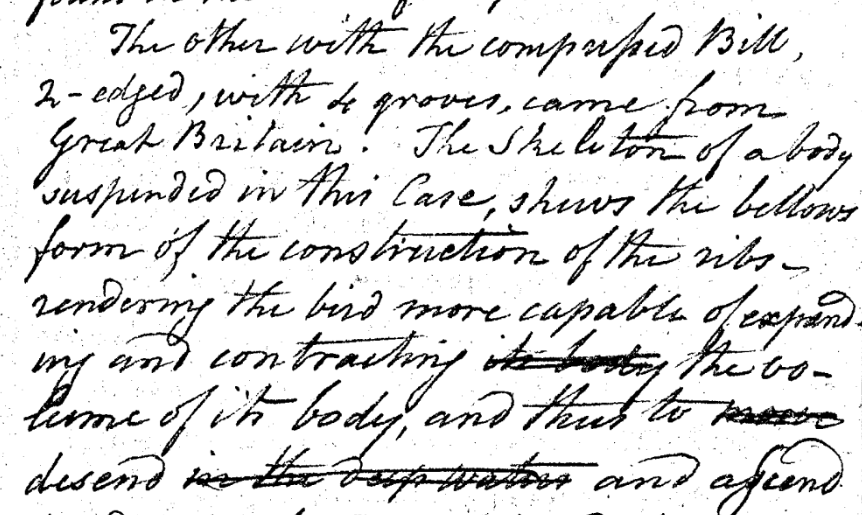 The other with the compressed Bill,
2-edged, with 4 groves, came from
Great Britain. The Skeleton of a body
suspended in this Case, shews the bellows
form of the construction of the ribs-
rendering the bird more capable of expand-
ing and contracting its body the vo-
lume of its body, and thus to move
desend in the deep waters and ascend